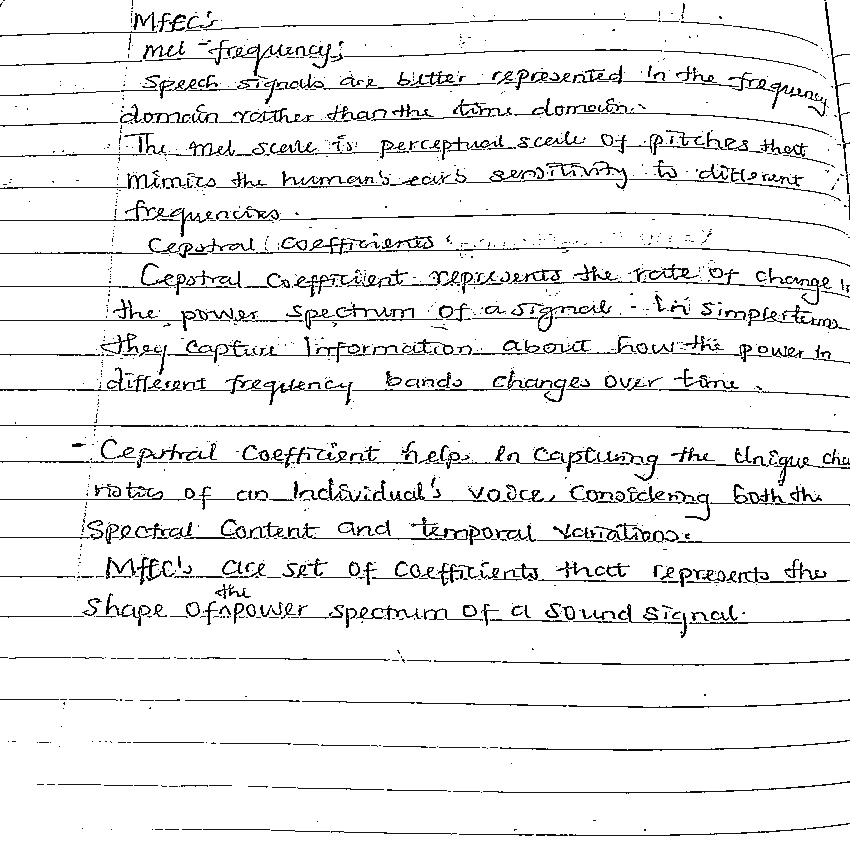 MFCC's
mel-frequency;
Speech signals are better represented in the frequency
domain rather than the time domain.
The mel scale is perceptual scale of pitches that
mimics the human's ear's sensitivity to different
frequencies.
Cepstral Coefficients
Cepstral Coefficient represents the rate of change in
the power spectrum of a signal. In simpler terms
they capture Information about how the power in
different frequency bands changes over time.
- Cepstral Coefficient helps in Capturing the Unique cha
ristics of an Individual's voice, Considering both the
Spectral Content and temporal variations.
MFCC's are set of coefficients that represents the
shape of the power spectrum of a sound signal.